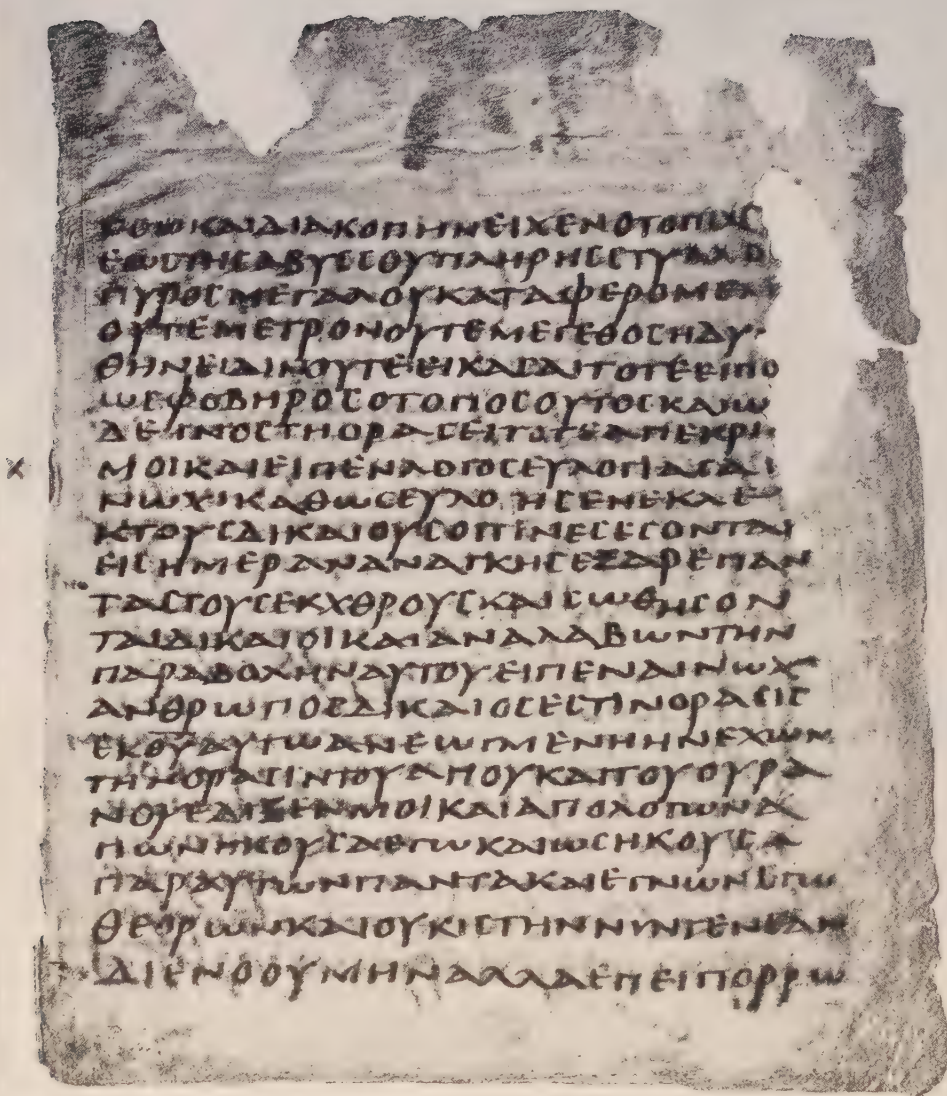 ΡΟΩΚΑΙΔΙΑΚΟΠΗΝΕΙΧΕΝΟΤΟΠΟΣ
ΕΩΣΤΗΣΑΒΥΣΣΟΥΠΛΗΡΗΣΣΤΥΛΛΩ
ΠΥΡΟΣΜΕΓΑΛΟΥΚΑΤΑΦΕΡΟΜΕΝ
ΟΥΤΕΜΕΤΡΟΝΟΥΤΕΜΕΓΕΘΟΣΗΔΥ
ΘΗΝΕΙΔΙΝΟΥΤΕΕΙΚΑΣΑΙΤΟΤΕΕΙΠΟ
ΩΣΦΟΒΗΡΟΣΟΤΟΠΟΣΟΥΤΟΣΚΑΙΩ
ΔΕΙΝΟΣΤΗΟΡΑΣΕΙΤΟΤΕΑΠΕΚΡΙ
Χ ΜΟΙΚΑΙΕΙΠΕΝΛΟΓΟΣΕΥΛΟΓΙΑΣΑΙ
ΝΩΧΙΚΑΘΩΣΕΥΛΟΓΗΣΕΝΕΚΛΕ
ΚΤΟΥΣΔΙΚΑΙΟΥΣΟΙΤΙΝΕΣΕΣΟΝΤΑΙ
ΕΙΣΗΜΕΡΑΝΑΝΑΓΚΗΣΕΞΑΡΕΠΑΝ
ΤΑΣΤΟΥΣΕΚΧΘΡΟΥΣΚΑΙΣΩΘΗΣΟΝ
ΤΑΙΔΙΚΑΙΟΙΚΑΙΑΝΑΛΑΒΩΝΤΗΝ
ΠΑΡΑΒΟΛΗΝΑΥΤΟΥΕΙΠΕΝΑΙΝΩΧ
ΑΝΘΡΩΠΟΣΔΙΚΑΙΟΣΕΣΤΙΝΟΡΑΣΙΣ
ΕΚΘΥΑΥΤΩΑΝΕΩΓΜΕΝΗΗΝΕΧΩΝ
ΤΗΝΟΡΑΣΙΝΤΟΥΑΓΙΟΥΚΑΙΤΟΥΟΥΡΑ
ΝΟΥΕΔΙΞΕΝΜΟΙΚΑΙΑΓΙΟΛΟΓΩΝΑ
ΓΙΩΝΗΚΟΥΣΑΕΓΩΚΑΙΩΣΗΚΟΥΣΑ
ΠΑΡΑΥΤΩΝΠΑΝΤΑΚΑΙΕΓΝΩΝΕΓΩ
ΘΕΟΡΩΝΚΑΙΟΥΚΙΣΤΗΝΝΙΝΓΕΝΕΑΝ
ΔΙΕΝΟΟΥΜΗΝΑΛΛΑΕΠΕΙΠΟΡΡΩ